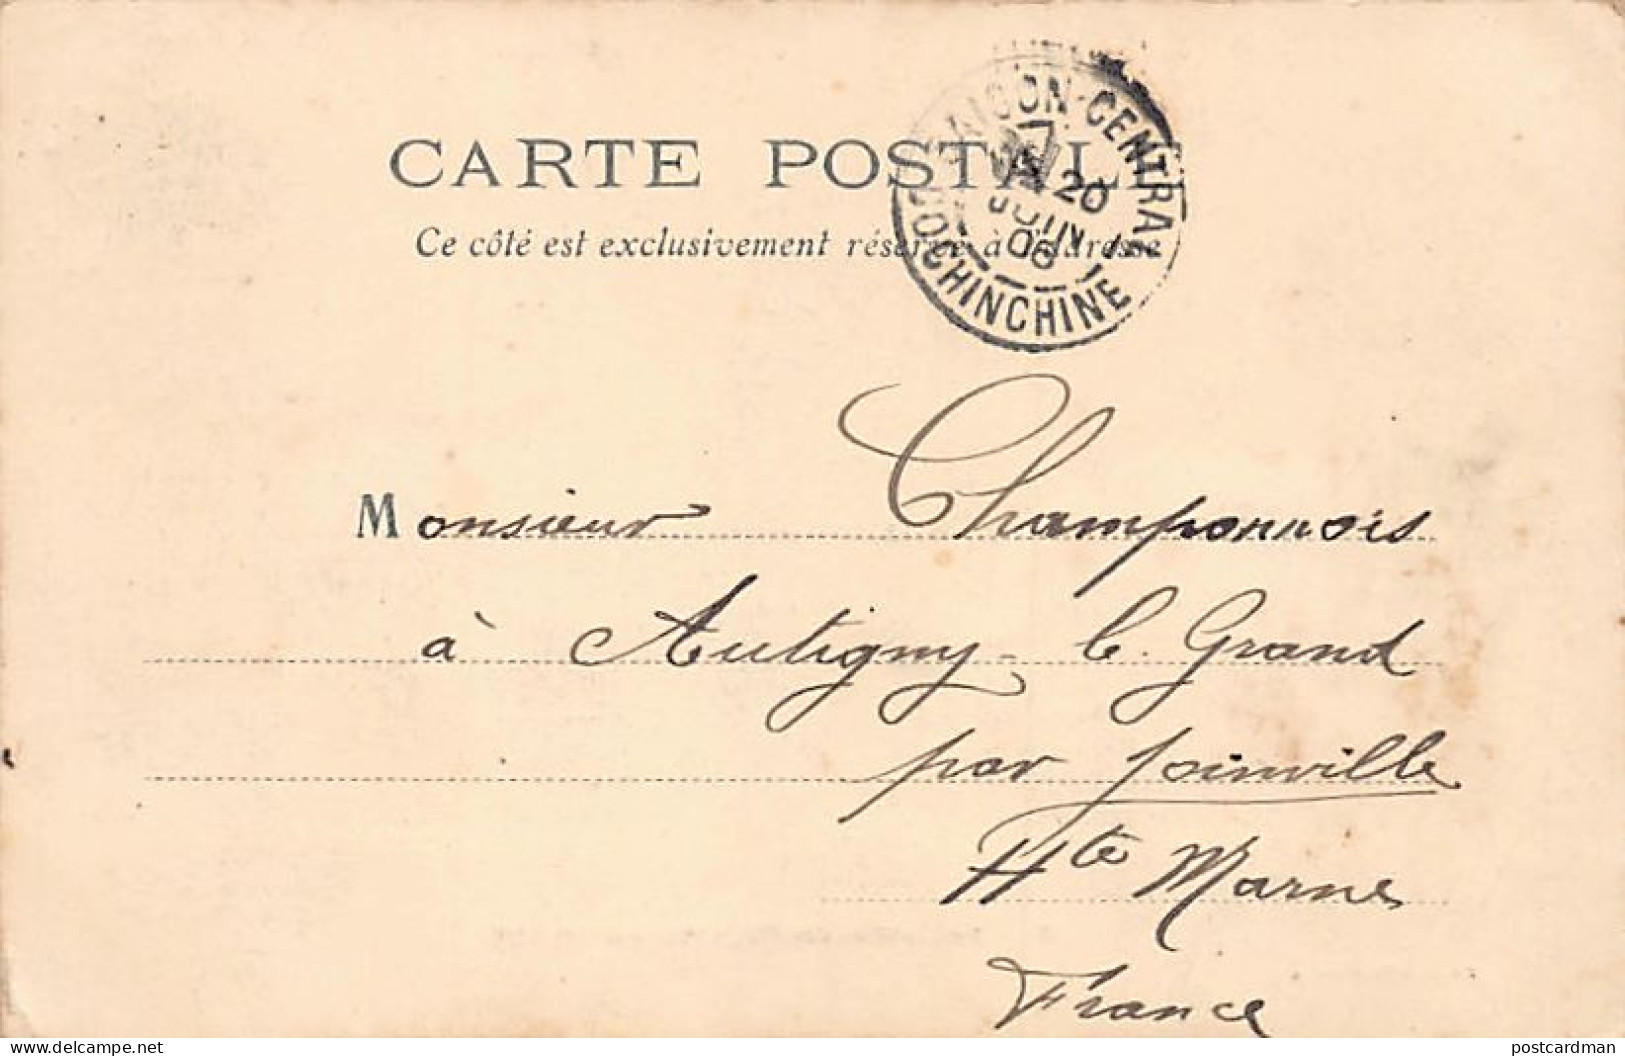 SAIGON-CENTRAL
7
20
JUIN
06
COCHINCHINE
CARTE POSTALE
Ce côté est exclusivement réservé à l'adresse
Monsieur Champonnois
à Autigny-le-Grand
par Joinville
Hte Marne
France
postcardman